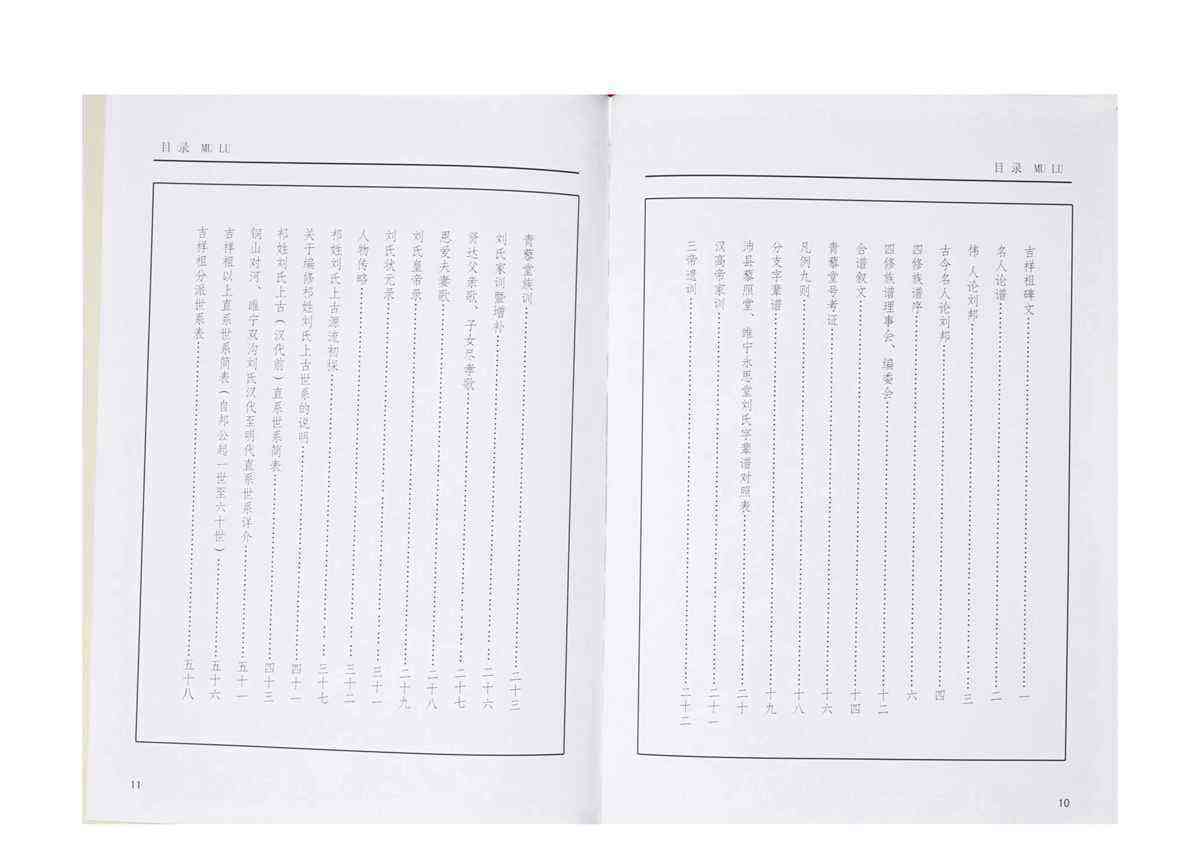 目录 MU LU
吉祥祖碑文……一
名人论谱……二
伟 人论刘邦……三
古今名人论刘邦……四
四修族谱序……六
四修族谱理事会、编委会……十二
合谱叙文……十四
青藜堂号考证……十六
凡例九则……十八
分支字辈谱……十九
沛县藜照堂、睢宁永思堂刘氏字辈谱对照表……二十
汉高帝家训……二十一
三帝遗训……二十二
10
目录 MU LU
青藜堂族训……二十三
刘氏家训暨增补……二十六
贤达父亲歌、子女尽孝歌……二十七
恩爱夫妻歌……二十八
刘氏皇帝录……二十九
刘氏状元录……三十一
人物传略……三十二
祁姓刘氏上古源流初探……三十七
关于编修祁姓刘氏上古世系的说明……四十一
祁姓刘氏上古（汉代前）直系世系简表……四十三
铜山对河、睢宁双沟刘氏汉代至明代直系世系详介……五十一
吉祥祖以上直系世系简表（自邦公起一世至六十世）……五十六
吉祥祖分派世系表……五十八
11